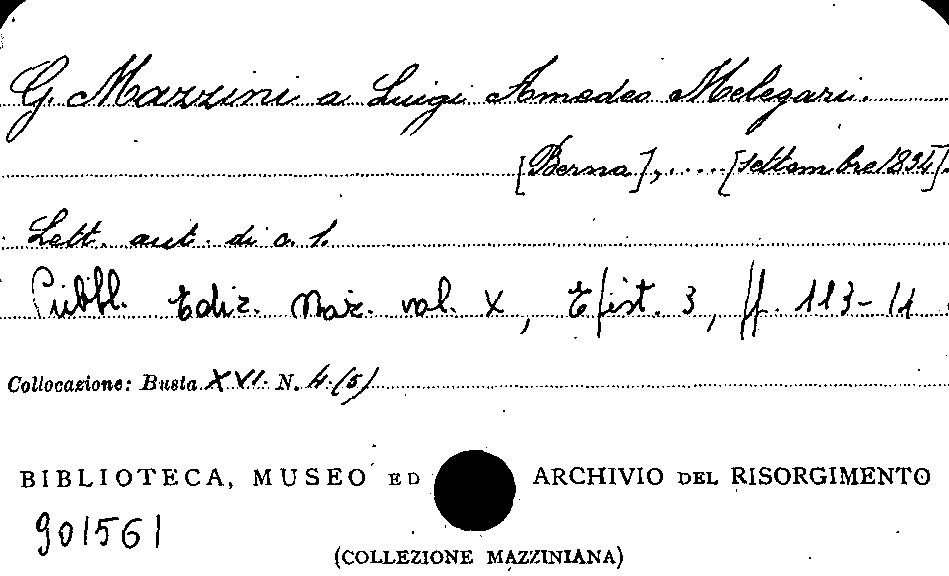 G. Mazzini a Luigi Amedeo Melegari.
[Berna], ..... [settembre 1834].
Lett. aut. di c. 1.
Pubbl. Ediz. Naz. vol. X, Epist. 3, pp. 113-14
Collocazione: Busta XVI N. 4 (5)
BIBLIOTECA, MUSEO ED ARCHIVIO DEL RISORGIMENTO
901561
(COLLEZIONE MAZZINIANA)